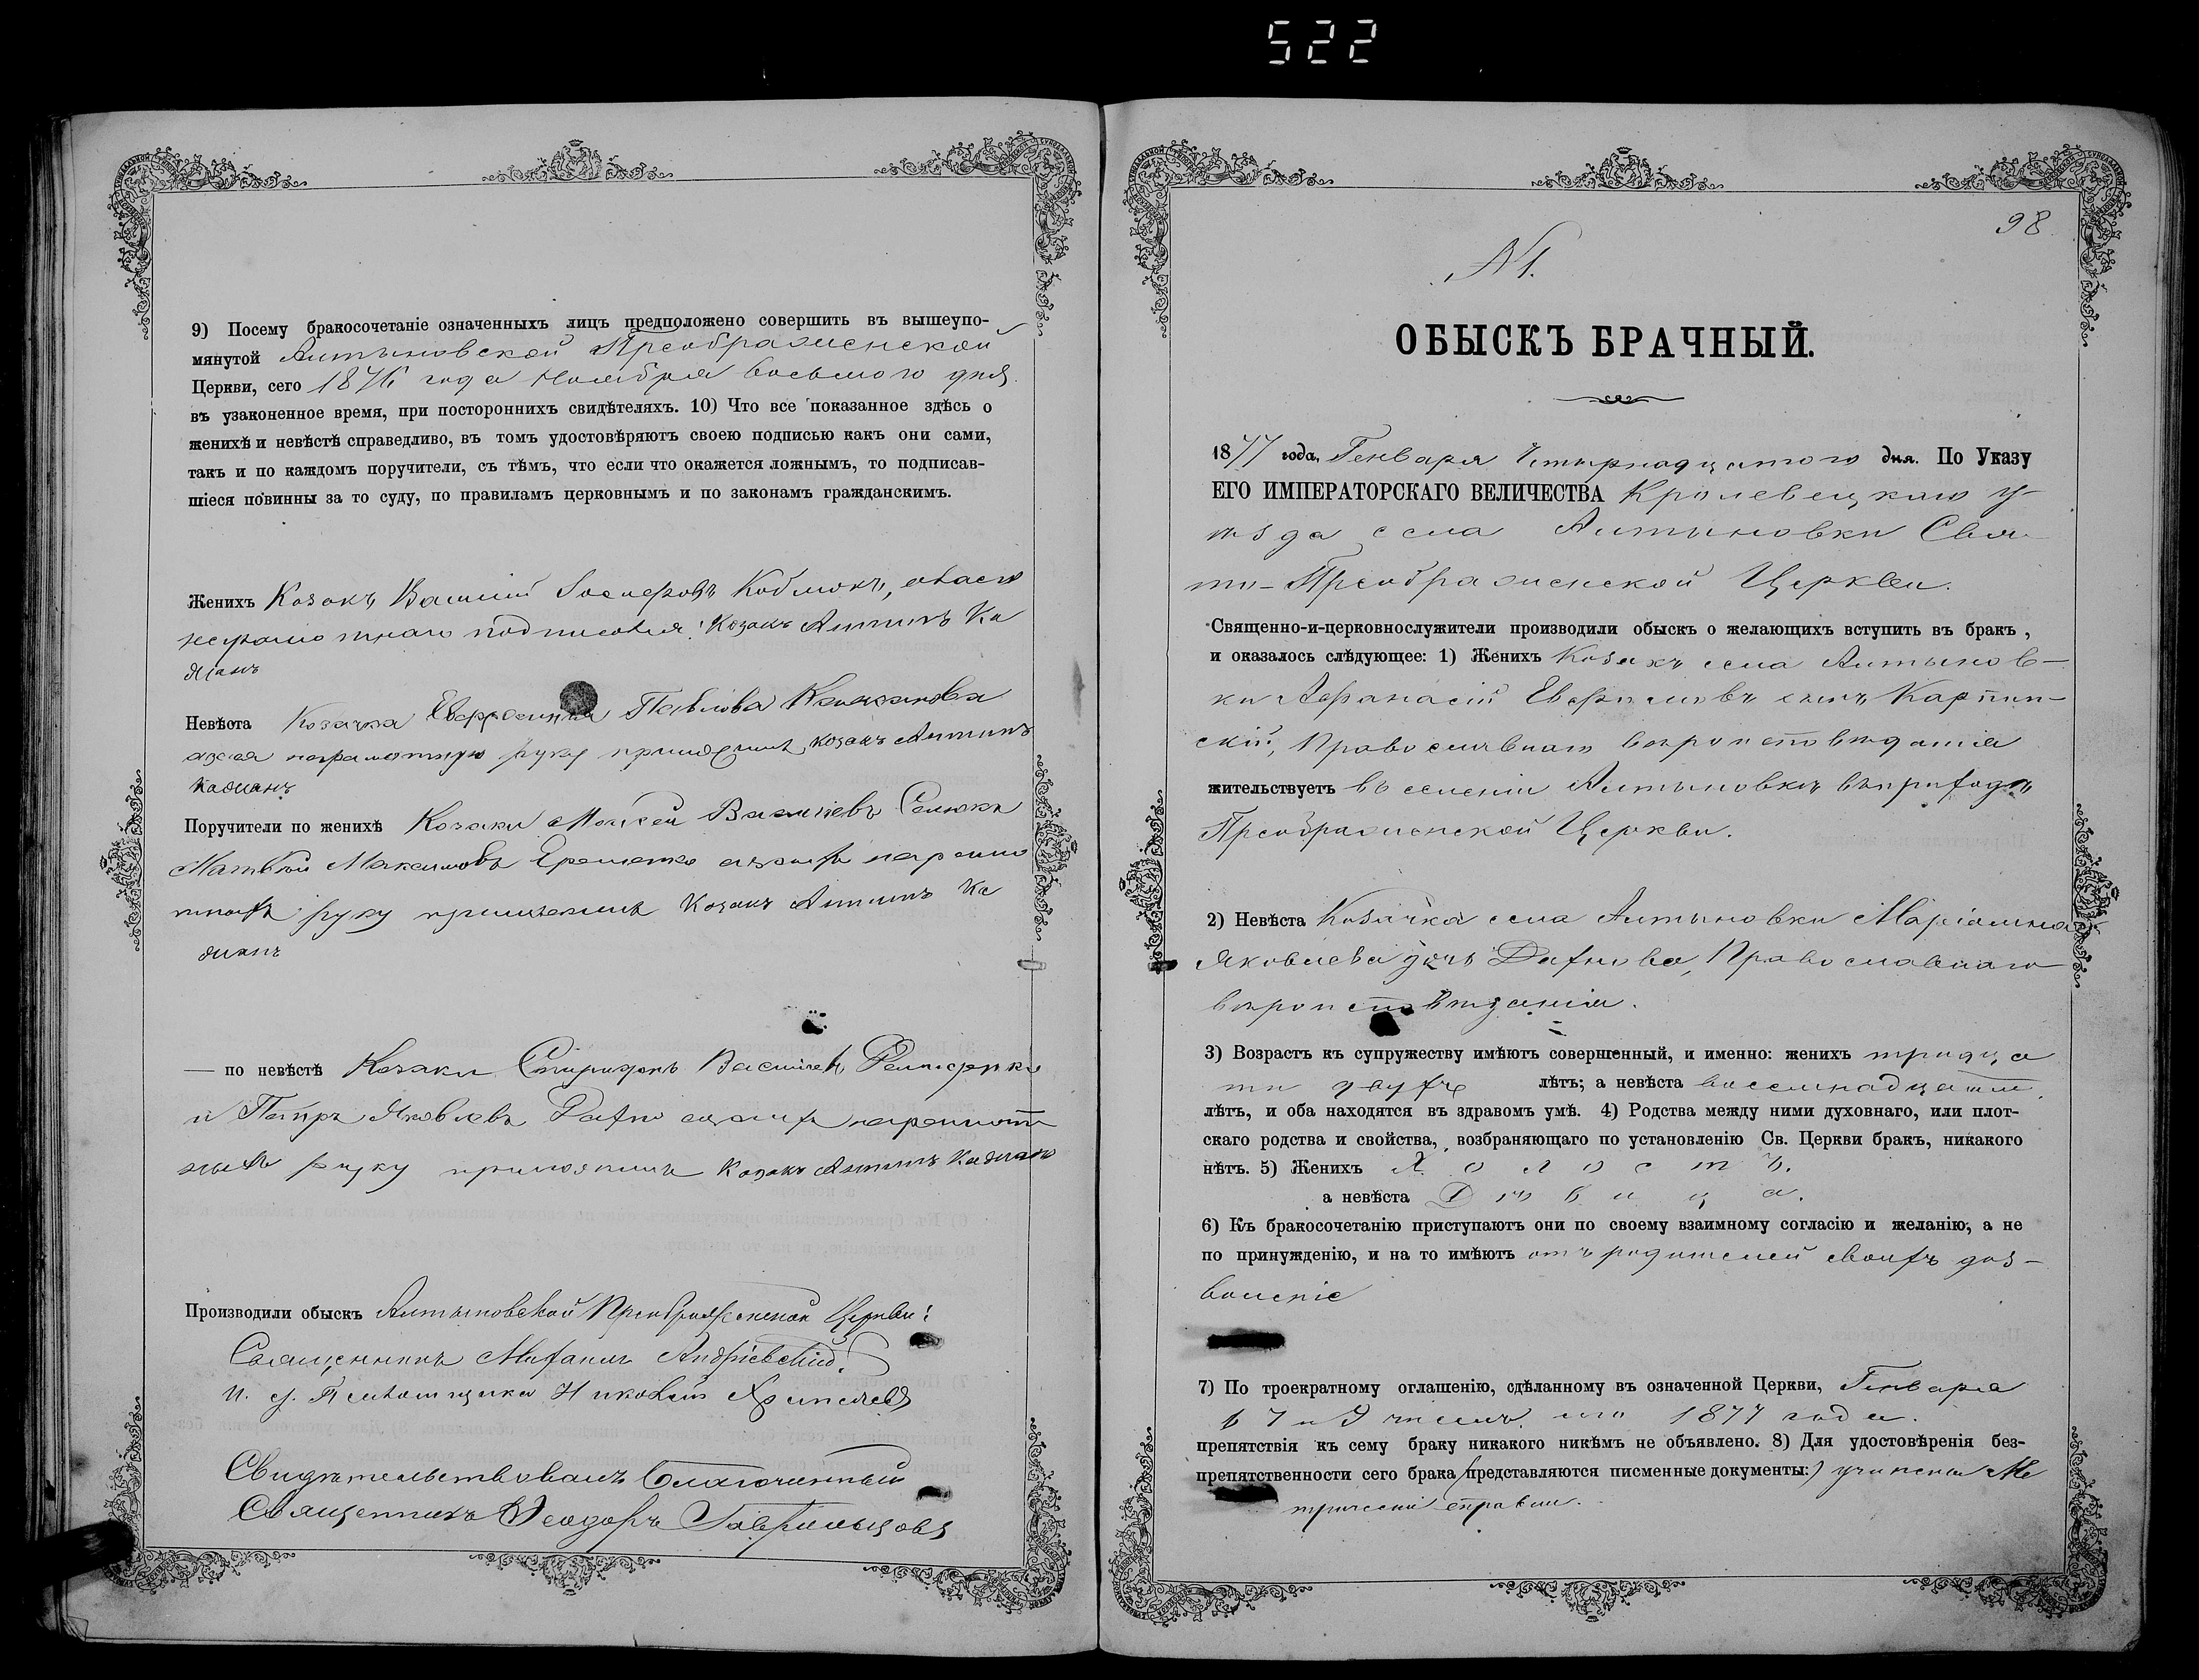 522
9) Посему бракосочетаніе означенныхъ лицъ предположено совершить въ вышеупо-
мянутой Алтыновской Преображенской
Церкви, сего 1876 года Ноября восьмого дня
въ узаконенное время, при постороннихъ свидѣтеляхъ. 10) Что все показанное здѣсь о
женихѣ и невѣстѣ справедливо, въ томъ удостовѣряютъ своею подписью какъ они сами,
такъ и по каждомъ поручители, съ тѣмъ, что если что окажется ложнымъ, то подписав-
шіеся повинны за то суду, по правиламъ церковнымъ и по законамъ гражданскимъ.
Женихъ Козакъ Василій Іосифовъ
неграмотнаго подписался: Козакъ Антинъ Ка
дианъ
Невѣста Козачка Евфросинія Павлова
неграмотную руку приложилъ козакъ Антинъ
Кадианъ
Поручители по женихѣ Козаки Моисей Васильевъ Селюкъ
Матвѣй Максимовъ Ерошенко а за нихъ неграмо
тныхъ руку приложилъ Козакъ Антинъ Ка
дианъ
— по невѣстѣ Козаки Спиридонъ Васильевъ
и Петръ Яковлевъ Дахно а за нихъ неграмот
ныхъ руку приложилъ Козакъ Антинъ Кадианъ
Производили обыскъ Алтыновской Преображенской Церкви:
Священникъ Михаилъ Андріевскій.
И. д. Псаломщика Николай
Свидѣтельствовалъ Благочинный
Священникъ Ѳеодоръ
98
№ 1.
ОБЫСКЪ БРАЧНЫЙ.
1877 года, Генваря Четырнадцатого дня. По Указу
ЕГО ИМПЕРАТОРСКАГО ВЕЛИЧЕСТВА Кролевецкаго у-
ѣзда села Алтыновки Свя-
то-Преображенской Церкви.
Священно-и-церковнослужители производили обыскъ о желающихъ вступить въ бракъ,
и оказалось слѣдующее: 1) Женихъ Козакъ села Алтынов-
ки Афанасій Евфимовъ сынъ Карпин-
скій, Православнаго вѣроисповѣданія
жительствуетъ въ селеніи Алтыновкѣ въ приходѣ
Преображенской Церкви.
2) Невѣста Козачка села Алтыновки Маріамна
Яковлева дочь Дахнова, Православнаго
вѣроисповѣданія.
3) Возрастъ къ супружеству имѣютъ совершенный, и именно: женихъ тридца
ти двухъ лѣтъ; а невѣста восемнадцати
лѣтъ, и оба находятся въ здравомъ умѣ. 4) Родства между ними духовнаго, или плот-
скаго родства и свойства, возбраняющаго по установленію Св. Церкви бракъ, никакого
нѣтъ. 5) Женихъ Холостъ.
а невѣста Дѣвица.
6) Къ бракосочетанію приступаютъ они по своему взаимному согласію и желанію, а не
по принужденію, и на то имѣютъ отъ родителей своихъ доз-
воленіе
7) По троекратному оглашенію, сдѣланному въ означенной Церкви, Генваря
6 7 и 9 чиселъ 1877 года.
препятствія къ сему браку никакого никѣмъ не объявлено. 8) Для удостовѣренія без-
препятственности сего брака (представляются писменные документы:) учинены Ме
трическіе справки.